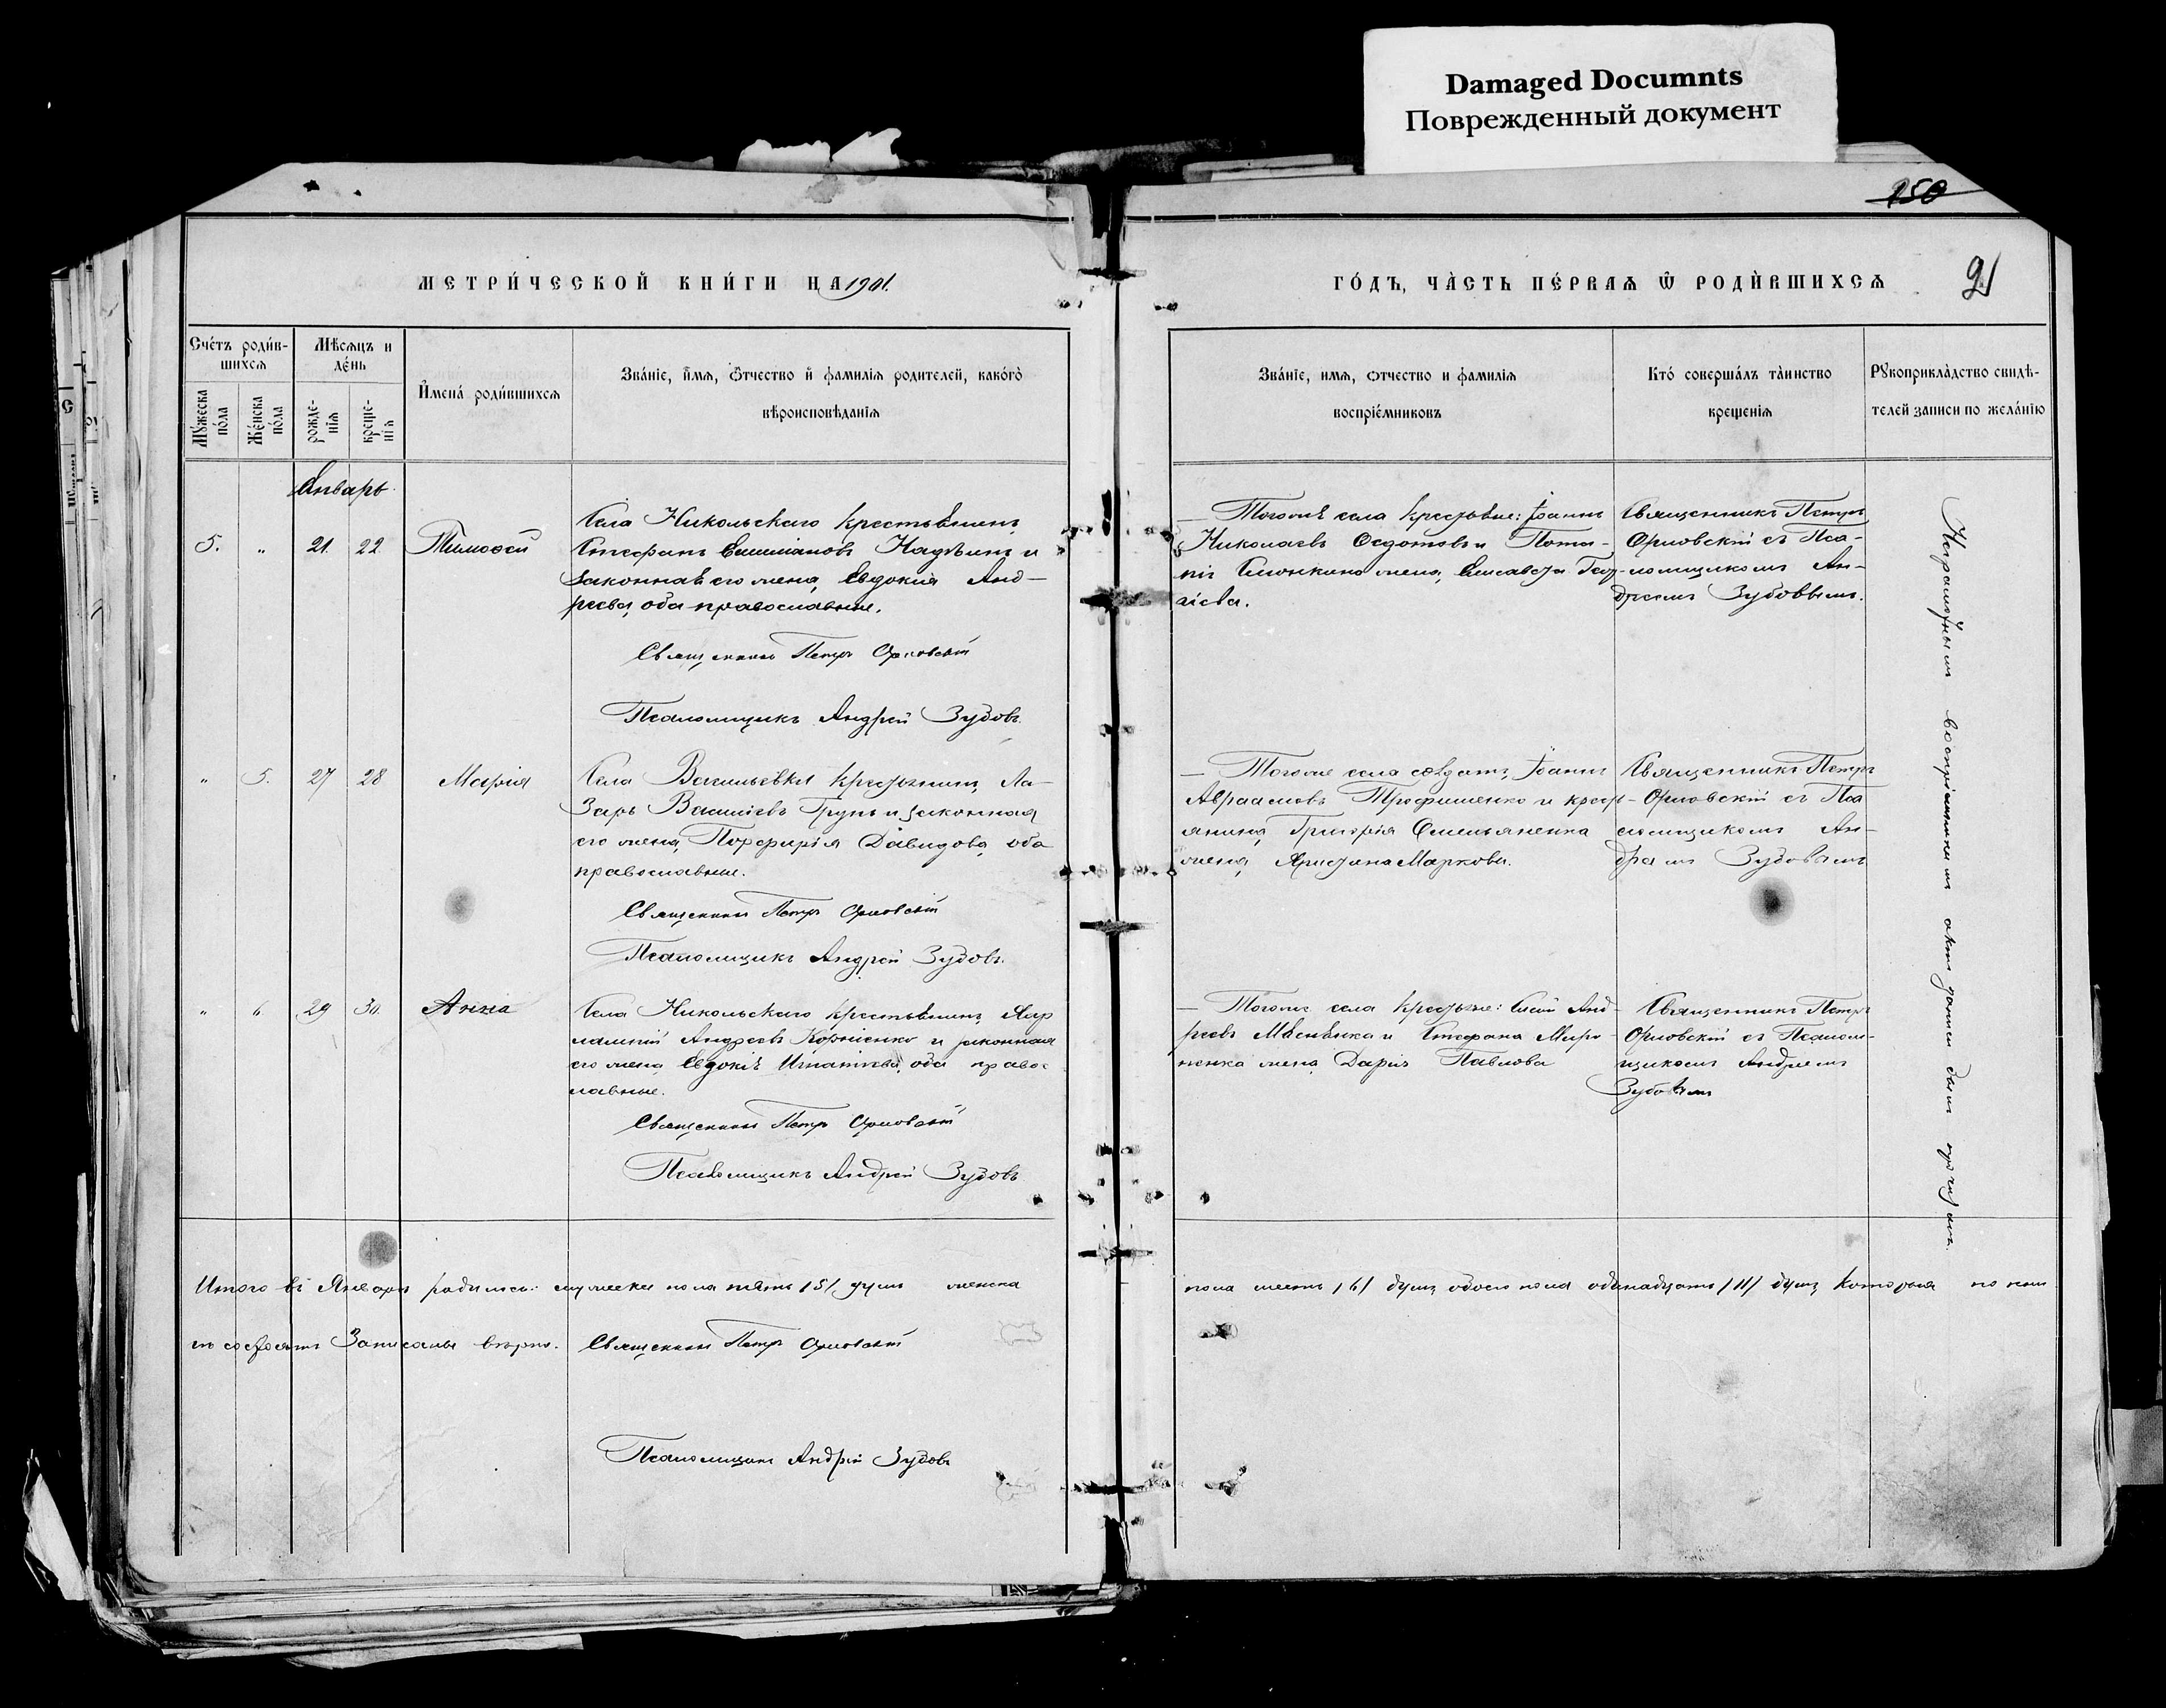 Damaged Documnts
Поврежденный документ
150
МЕТРИ́ЧЕСКОЙ КНИ́ГИ НА 1901.
ГО́ДЪ, ЧА̀СТЬ ПЕ́РВАѦ Ѿ РОДИ́ВШИХСѦ
21
Сче́тъ роди́в-
шихсѧ
Мѣ́сѧцъ и
де́нь
Мꙋ́жеска
по́ла
Же́нска
по́ла
рожде-
нїѧ
креще-
нїѧ
И҆мена́ роди́вшихсѧ
Зва́нїе, и҆́мѧ, ѻ҆́тчество и҆ фамилїѧ родителей, како́гѡ
вѣроисповѣданїѧ
Зва́нїе, имѧ, ѻтчество и фамилїѧ
воспрїе́мниковъ
Кто̀ соверша́лъ та̀инство
крещенїѧ
Рꙋкоприкла̀дство свидѣ-
телей записи по жела́нїю
Январь
5. „ 21. 22. Тимоѳей
Села Никольскаго крестьянинъ
Стефанъ Надѣинъ и
законная его жена, Евдокия Анд-
реева, оба православные.
Священникъ Петръ Орловскій
Псаломщикъ Андрей Зубовъ.
Тогоже села крестьяне: Іоаннъ
Николаевъ Ѳедотовъ и
жена, Елисавета
Священникъ Петръ
Орловскій съ Пса-
ломщикомъ Ан-
дреемъ Зубовымъ.
„ 5. 27 28 Марія
Села Васильевки крестьянинъ, Ла-
зарь Васильевъ и законная
его жена, Порфирія Давидова, оба
православные.
Священникъ Петръ Орловскій
Псаломщикъ Андрей Зубовъ.
Тогоже села солдатъ, Іоаннъ
Авраамовъ Трофименко и крест-
янина, Григорія Емельяненка
жена, Христина Маркова.
Священникъ Петръ
Орловскій съ Пса
ломщикомъ Ан-
Зубовымъ
„ 6. 29 30. Анна
Села Никольскаго крестьянинъ, Хар
лампій Андреевъ Корніенко и законная
его жена, Евдокія Игнатіева, оба право-
славные.
Священникъ Петръ Орловскій
Псаломщикъ Андрей Зубовъ
Тогоже села крестьяне: Анд-
реевъ и Стефана Миро-
ненка жена, Дарія Павлова
Священникъ Петръ
Орловскій съ Псалом-
щикомъ Андреемъ
Зубовымъ
Неграмотнымъ воспріемникамъ актъ данный былъ прочитанъ.
Итого въ Январѣ родилось: мужеска пола пять /5/ душъ женска
пола шесть /6/ душъ, обоего пола одинадцать /11/ душъ которыя по
состоятъ Записаны вѣрно. Священникъ Петръ Орловскій
Псаломщикъ Андрей Зубовъ